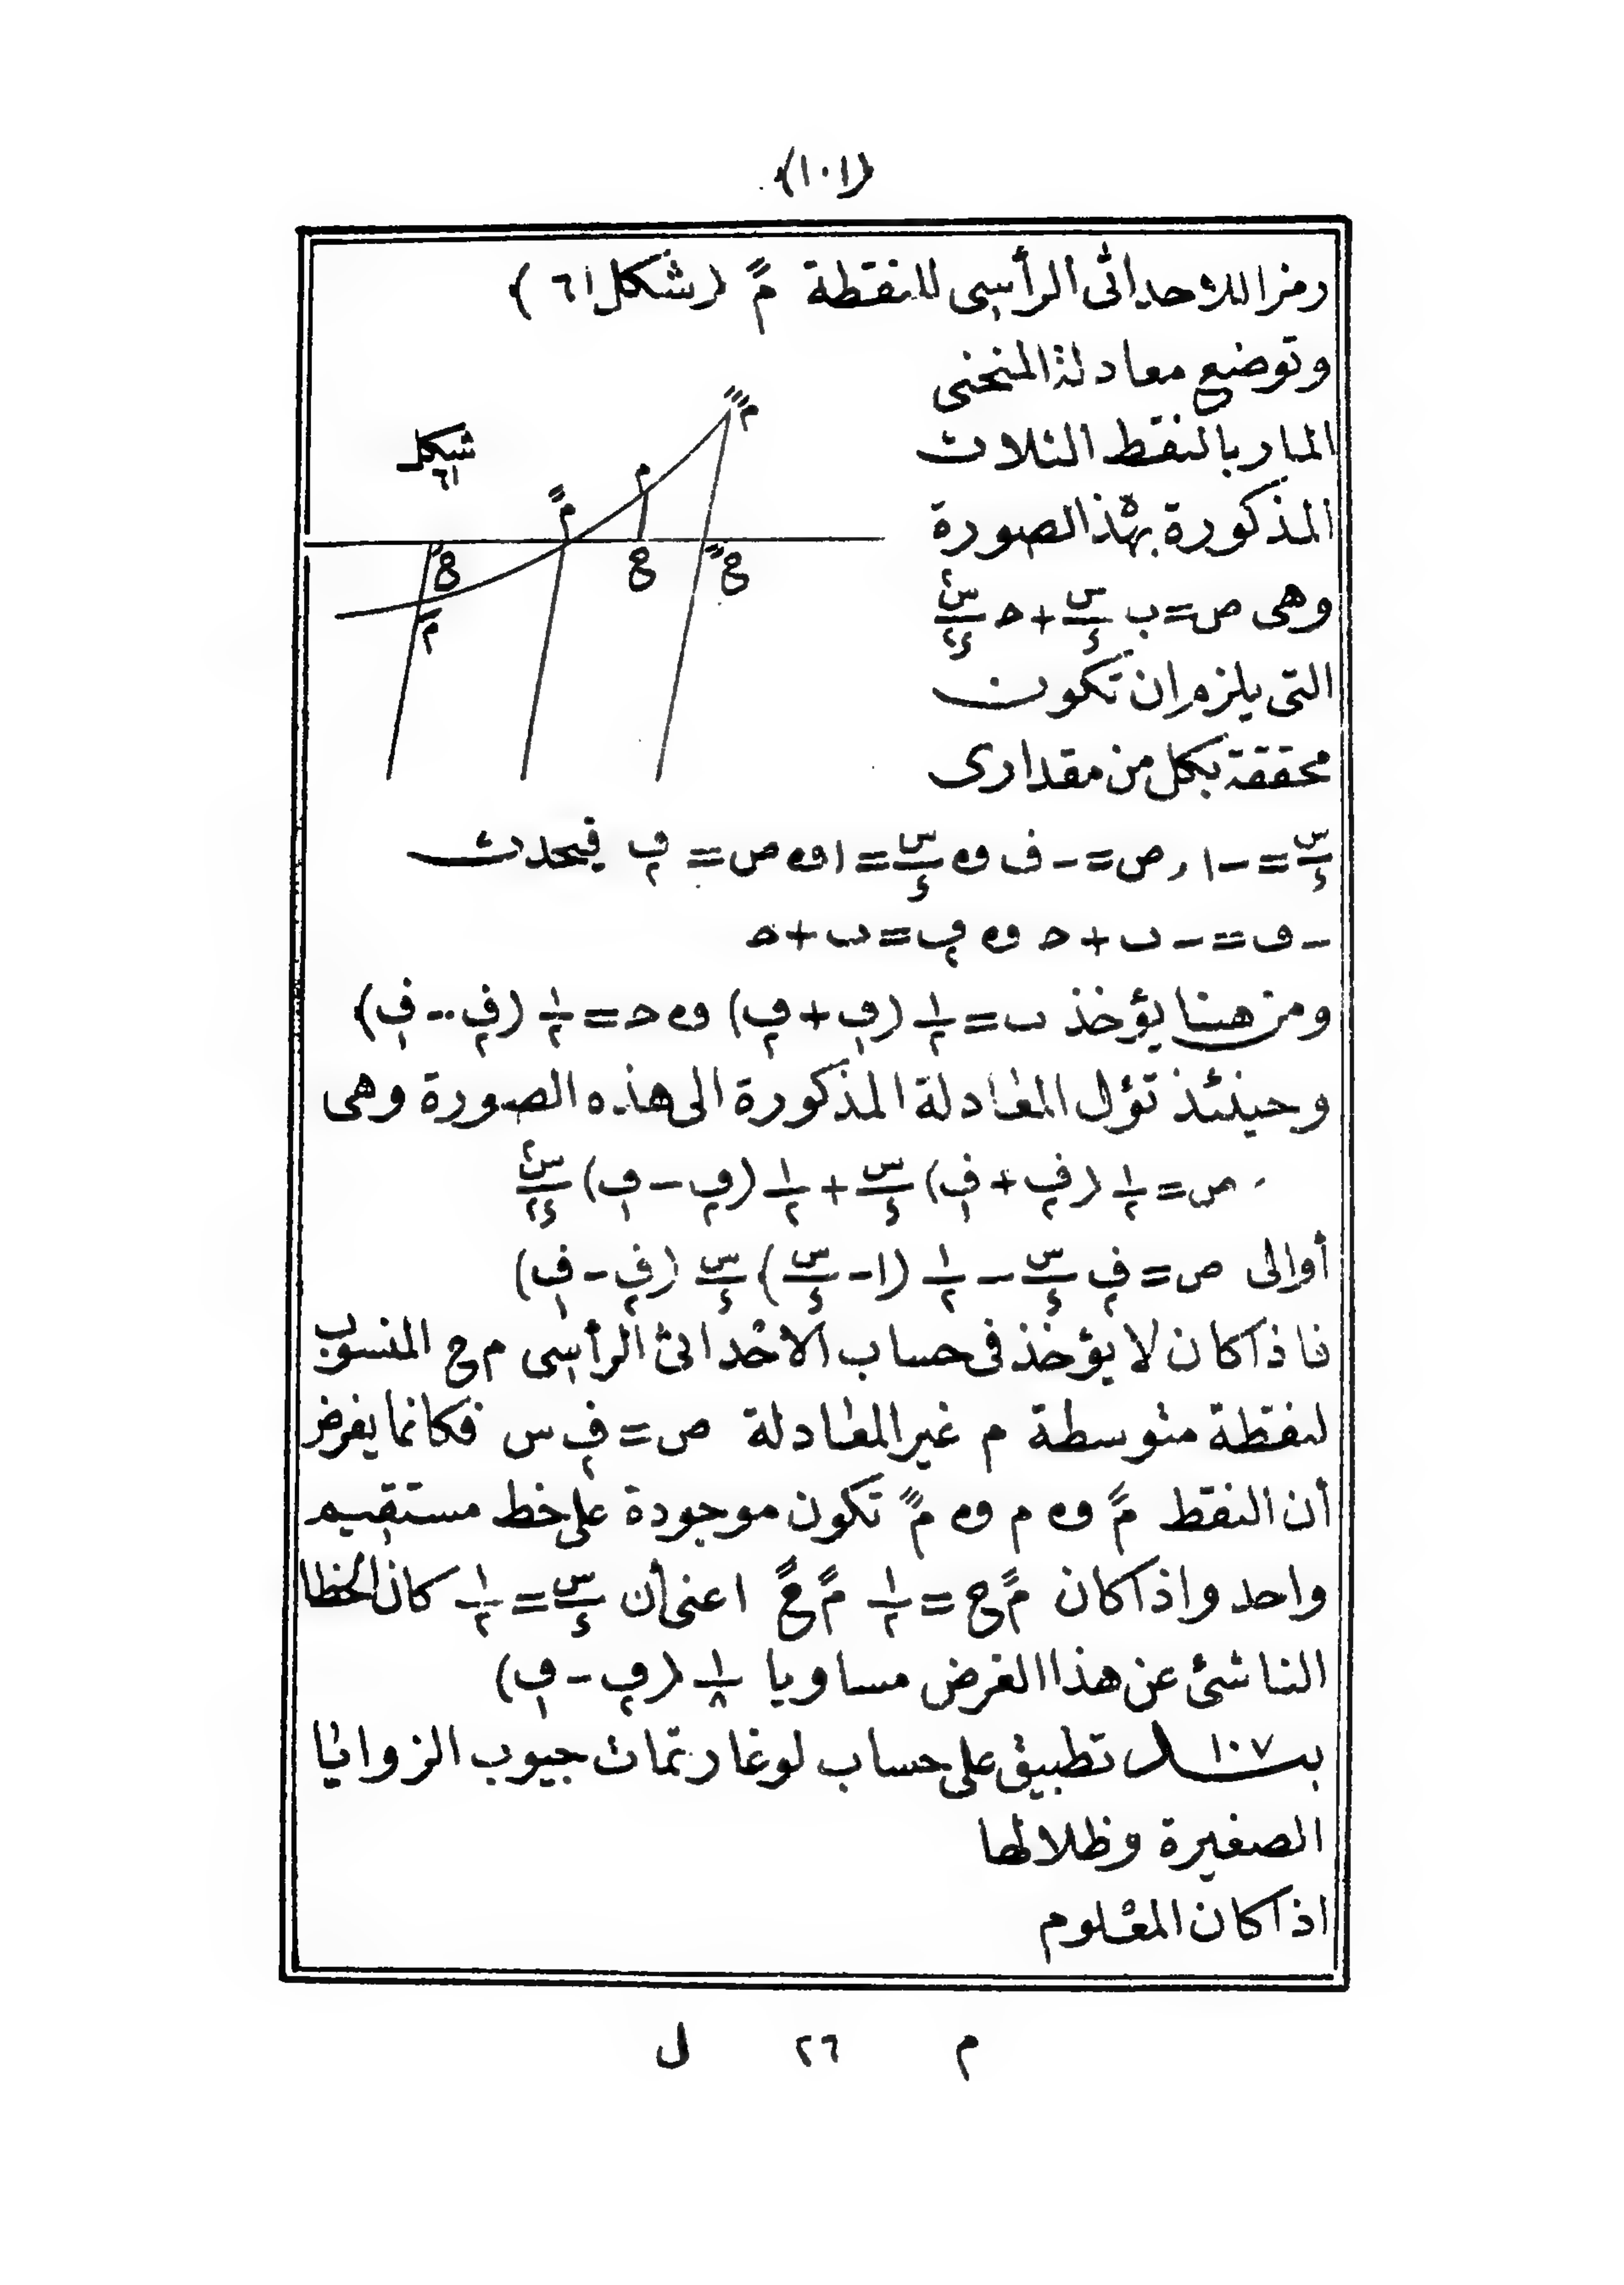 (١٠١)
رمزا للاحداثى الرأسى للنقطة مً (شكل ٦١)
وتوضع معادلة المنحنى
المار بالنقط الثلاث
المذكورة بهذه الصورة
وهى ص = ب س/ء + ح س٢/ء٢
التى يلزم ان تكون
محققة بكل من مقدارى
شكل
٦١
س/ء = -١ , ص = -ف و س/ء = ١ و ص = ف٢ فيحدث
-ف = -ب + ح و ف٢ = ب + ح
ومن هنا يؤخذ ب = ١/٢ (ف١ + ف٢) و ح = ١/٢ (ف٢ - ف١)
وحينئذ تؤل المعادلة المذكورة الى هذه الصورة وهى
ص = ١/٢ (ف٢ + ف١) س/ء + ١/٢ (ف٢ - ف١) س٢/ء٢
أوالى ص = ف٢ س/ء - ١/٢ (١ - س/ء) س/ء (ف٢ - ف١)
فاذا كان لا يؤخذ فى حساب الاحداثى الرأسى م ح المنسوب
لنقطة متوسطة م غير المعادلة ص = ف٢ س فكانما يفرض
أن النقط مً و م و مً تكون موجودة على خط مستقيم
واحد واذا كان مً ح = ١/٢ مً حً اعنى أن س/ء = ١/٢ كان الخطا
الناشئ عن هذا الفرض مساويا ١/٨ (ف٢ - ف١)
بند ١٠٧ تطبيق على حساب لوغارتمات جيوب الزوايا
الصغيرة وظلالها
اذا كان المعلوم
م ٢٦ ل